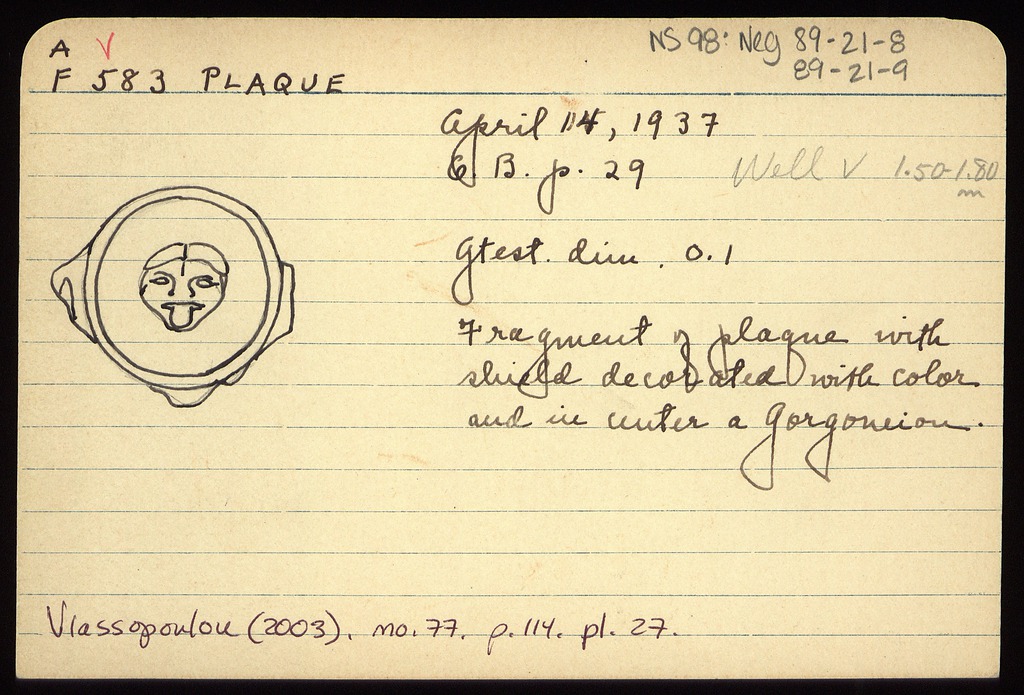 A V
F 583 PLAQUE
NS 98: Neg 89-21-8
89-21-9
April 14, 1937
B. p. 29
Well V 1.50-1.80
m
Gtest. dim. 0.1
Fragment of plaque with
shield decorated with color
and in center a Gorgoneion.
Vlassopoulou (2003). no. 77. p. 114. pl. 27.